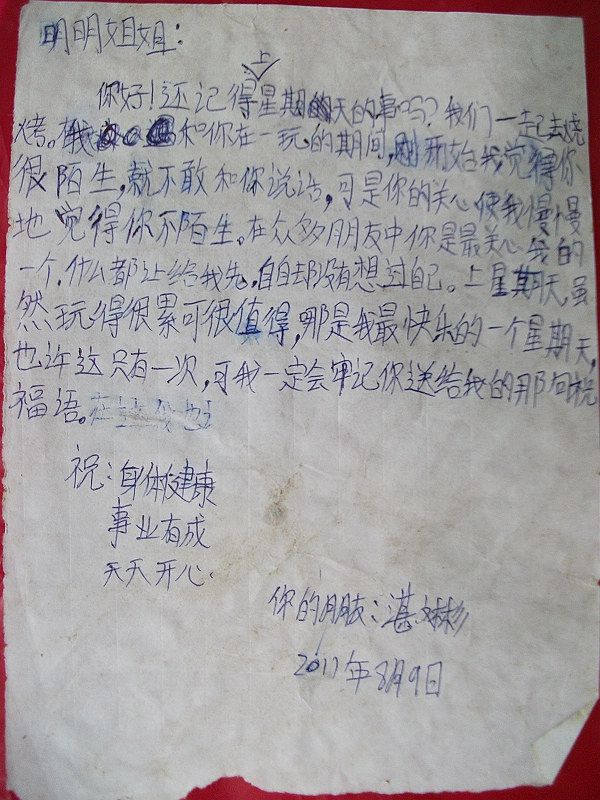 明明姐姐：
你好！还记得上星期天的事吗？我们一起去烧
烤。在和你在一玩的期间，刚开始我觉得你
很陌生，就不敢和你说话，可是你的关心使我慢慢
地觉得你不陌生。在众多朋友中你是最关心我的
一个，什么都让给我先，自自却没有想过自己。上星期天，虽
然玩得很累可很值得，哪是我最快乐的一个星期天，
也许这只有一次，可我一定会牢记你送给我的那句祝
福语。
祝：身体健康
事业有成
天天开心.
你的朋友：湛彬
2011年8月9日